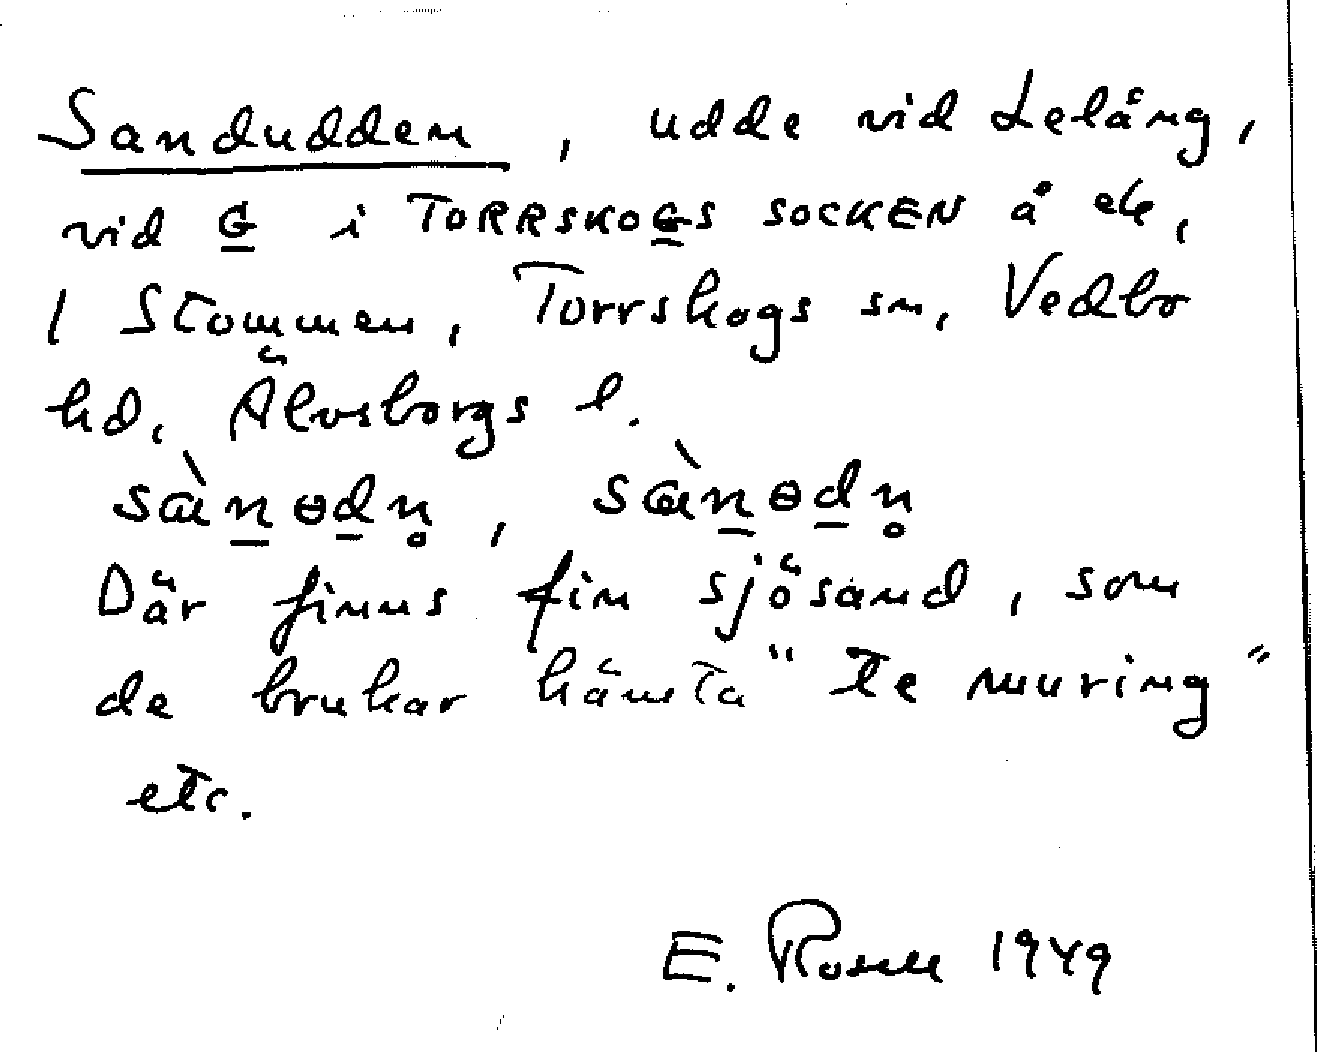 Sandudden, udde vid Lelång,
vid G i TORRSKOGS SOCKEN å ek,
1 Stommen, Torrskogs sn, Vedbo
hd, Älvsborgs l.
sànɵdn̥, sànɵdn̥
Där finns fin sjösand, som
de brukar hämta "te muring"
etc.
E. Rosell 1949